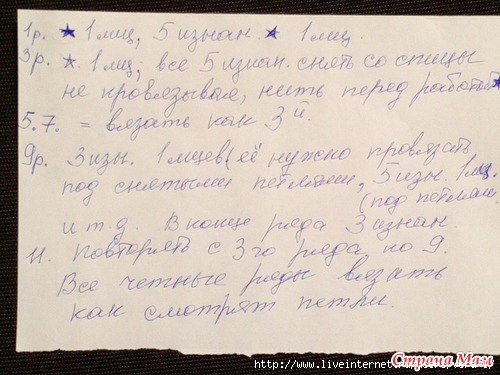 1р. ★ 1 лиц, 5 изнан ★ 1 лиц.
3р. ★ 1 лиц; все 5 изнан. снять со спицы
не провязывая, нить перед работой ★
5.7. = вязать как 3й.
9р. 3 изн. 1 лицев (её нужно провязать
под снятыми петлями, 5 изн. 1 лц.
(под петлями
и т.д. В конце ряда 3 изнан
11. Повторять с 3го ряда по 9.
Все четные ряды вязать
как смотрят петли.
Страна Мам